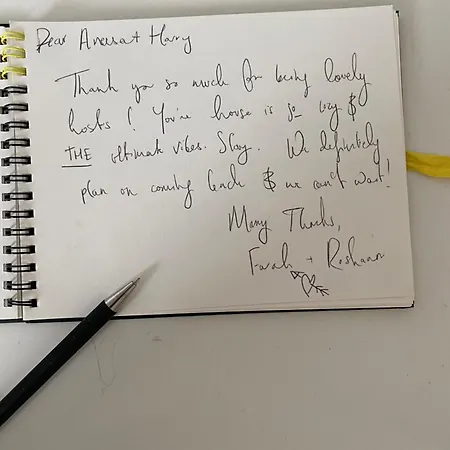 Dear Aneesa + Harry
Thank you so much for being lovely
hosts! You're house is so cozy &
THE ultimate vibes. Slay. We definitely
plan on coming back & we can't wait!
Many Thanks,
Farah + Roshaan